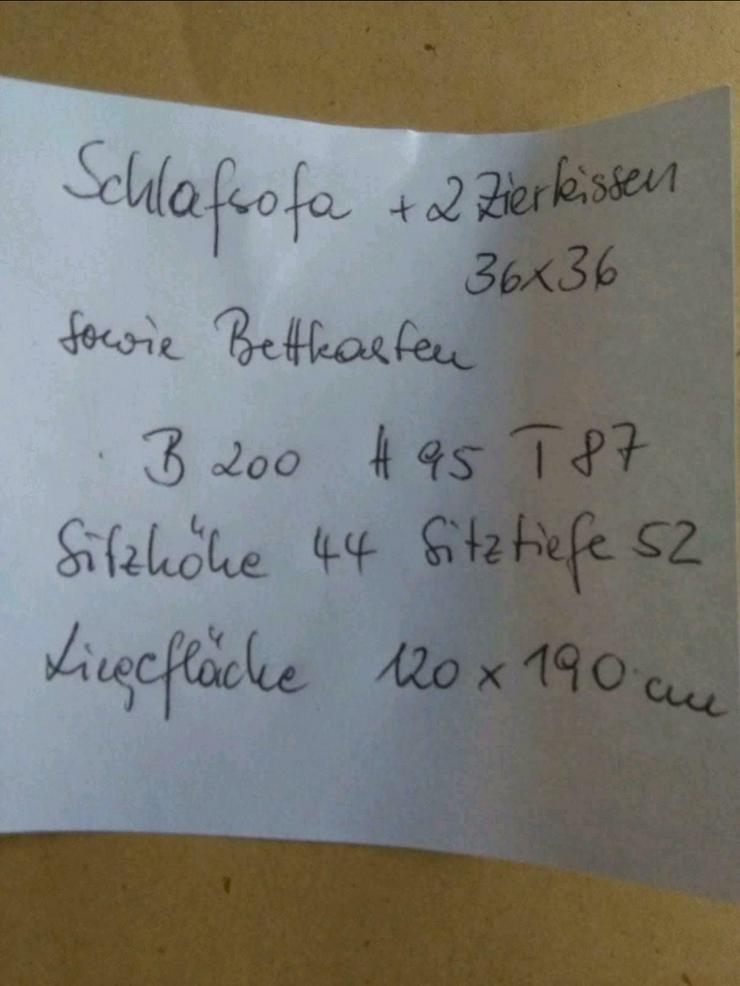 Schlafsofa + 2 Zierkissen
36x36
sowie Bettkasten
B 200 H 95 T 87
Sitzhöhe 44 Sitztiefe 52
Liegefläche 120 x 190 cm